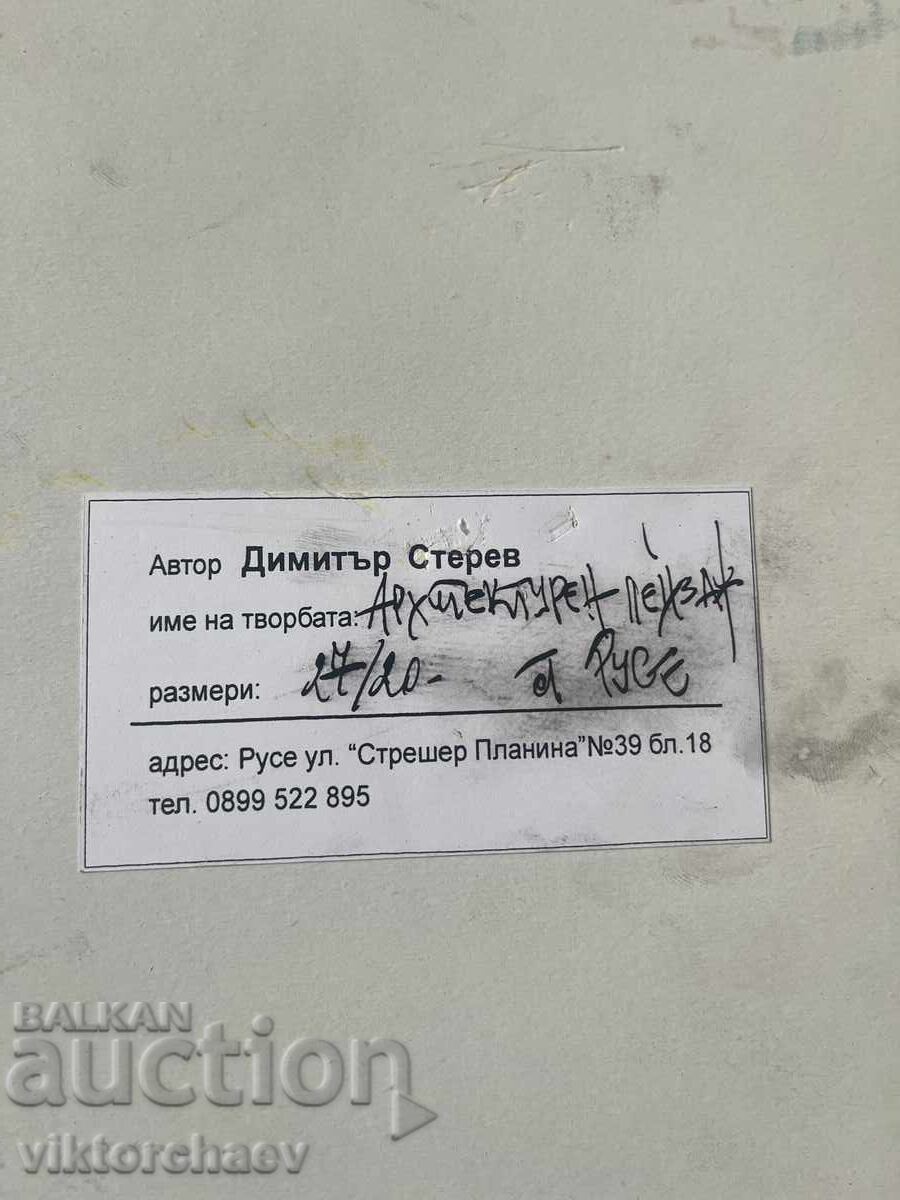 Автор Димитър Стерев
име на творбата: Архитектурен пейзаж
размери: 27/20- от Русе
адрес: Русе ул. “Стрешер Планина”№39 бл.18
тел. 0899 522 895
BALKAN
auction
viktorchaev